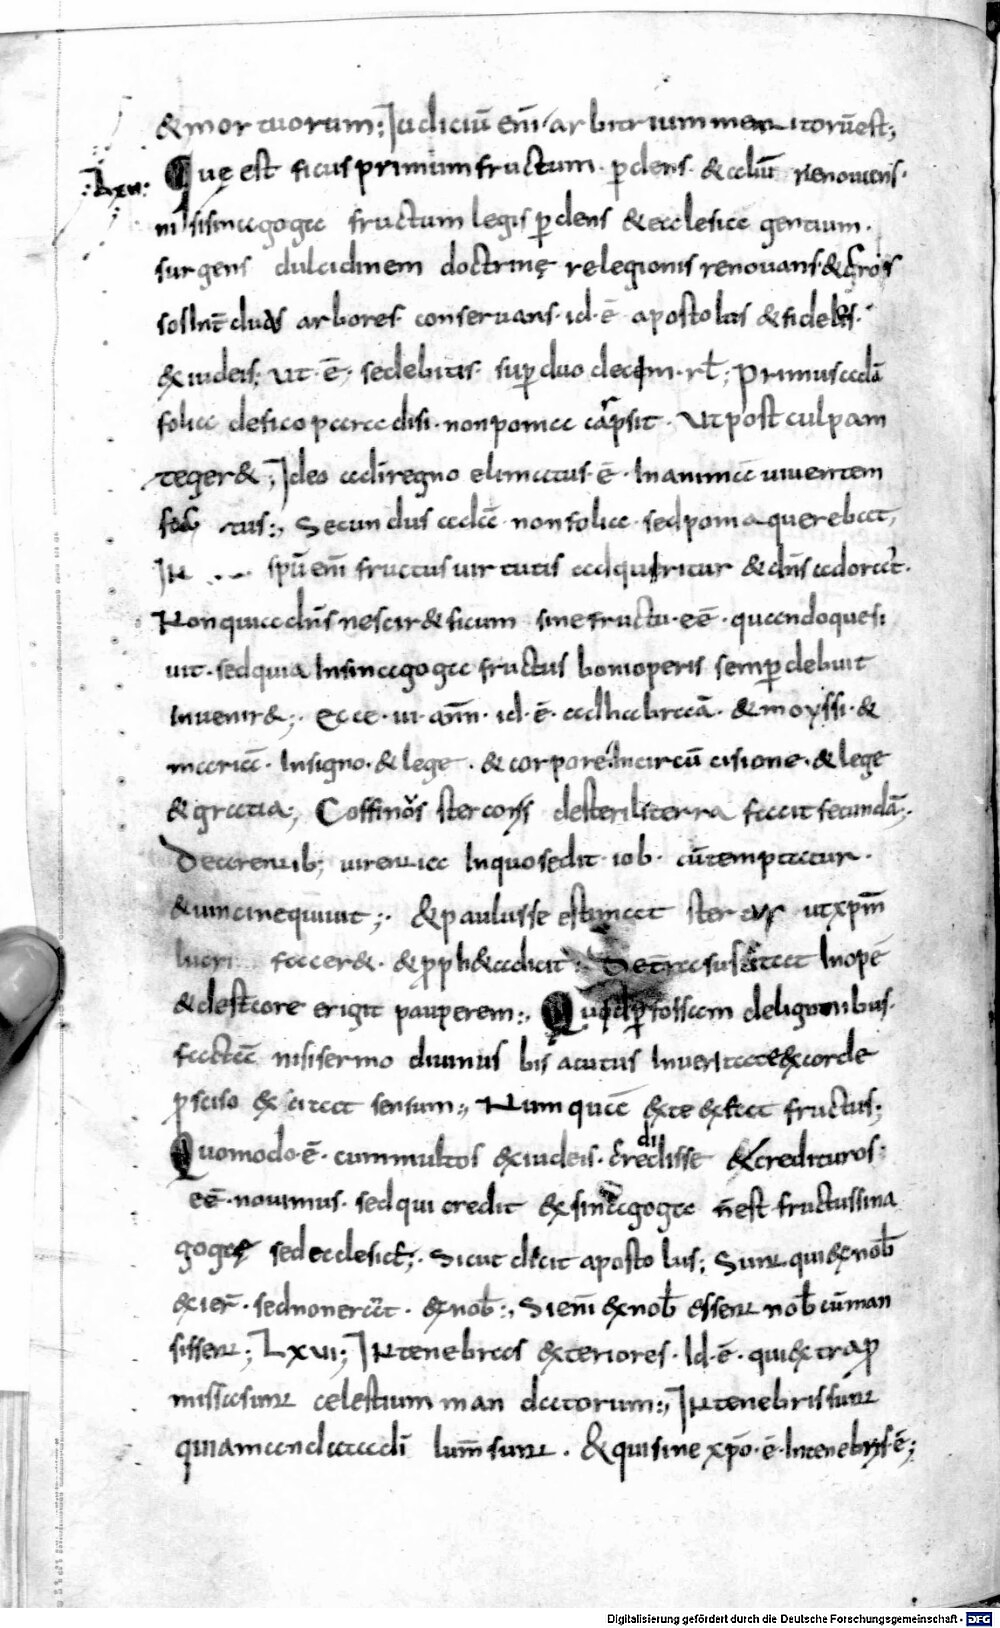 & mortuorum; Iudiciū enī arbitrium meritorū est;
:Lxu:
Quę est ficus primum fructum· pdens· & aliū renouans·
ni sisinagoga fructum legis pdens & ecclesia gentium·
surgens dulcidinem doctrinę relegionis renouans· & gros
sos duas arbores· conseruans· id·ē apostolus & fideles·
ex iudeis; ut·ē· sedebitis· sup duo decem·rł; Primus adā
folia de fico paradisi· non poma carpsit· Ut post culpam
teger&; Ideo a dī regno eliminatus·ē· In animā uiuentem
tus:, Secundus adā· non folia· sed poma querebat,
spū enī fructus uirtutis adquiritur & dn̄s adorat·
Non quia dn̄s nescir& ficum sine fructu·eē· quando quesi
uit· sed quia In sinagoga fructus boni operis semp debuit
Inuenir&;· Ecce·iii·ann̄·id·ē· ad habraā· & moyssi·&
mariā· In signo·& lege· & corpore· In circū cisione·& lege
& gratia; Coffinos stercoris de sterili terra facit fecundā;·
Decrerūt ib; uirentia In quo sedit·iob· cū temptatur·
& uincine quiuit;· & paulus se estimat stercus ut xp̄m
lucri facer&· & pph&a dicit· De terra suscitat Inopē
& de stercore erigit pauperem:, Quę de p fossam de lignonibus·
factā nisi sermo diuinus bis acutus Inueritate & ex corde
psciso excitat sensum:, Num quā ex te exeat fructus;
Quomodo·ē· cum multos ex iudeis· credidisse & credituros:
eē·nouimus· sed qui credit ex sinagoga n̄ est fructus sina
gogę sed ecclesię;· Sicut dicit apostolus; Sunt qui ex nob̄
ex ier̄·sed non erāt· ex nob̄:, Si enī ex nob̄ essent nob̄ cū man
sissent; Lxui; In tenebras exteriores· Id·ē· qui extra p
missa sunt celestium mandatorum:, In tenebris sunt
qui amandata dī lum̄ sunt· & qui sine xp̄o·ē· In tenebris·ē;
Digitalisierung gefördert durch die Deutsche Forschungsgemeinschaft - DFG